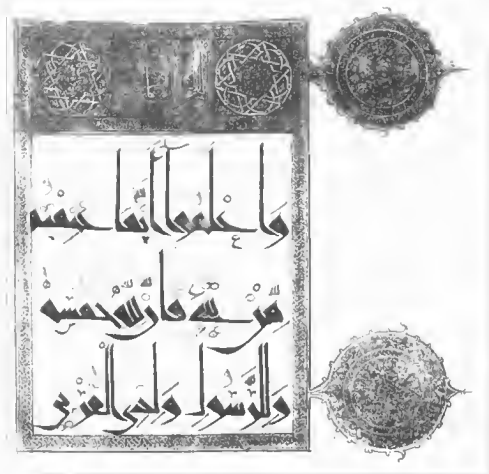 وَاعْلَمُوا أَنَّمَا غَنِمْتُم
مِّن شَيْءٍ فَأَنَّ لِلَّهِ خُمُسَهُ
وَلِلرَّسُولِ وَلِذِي الْقُرْبَى